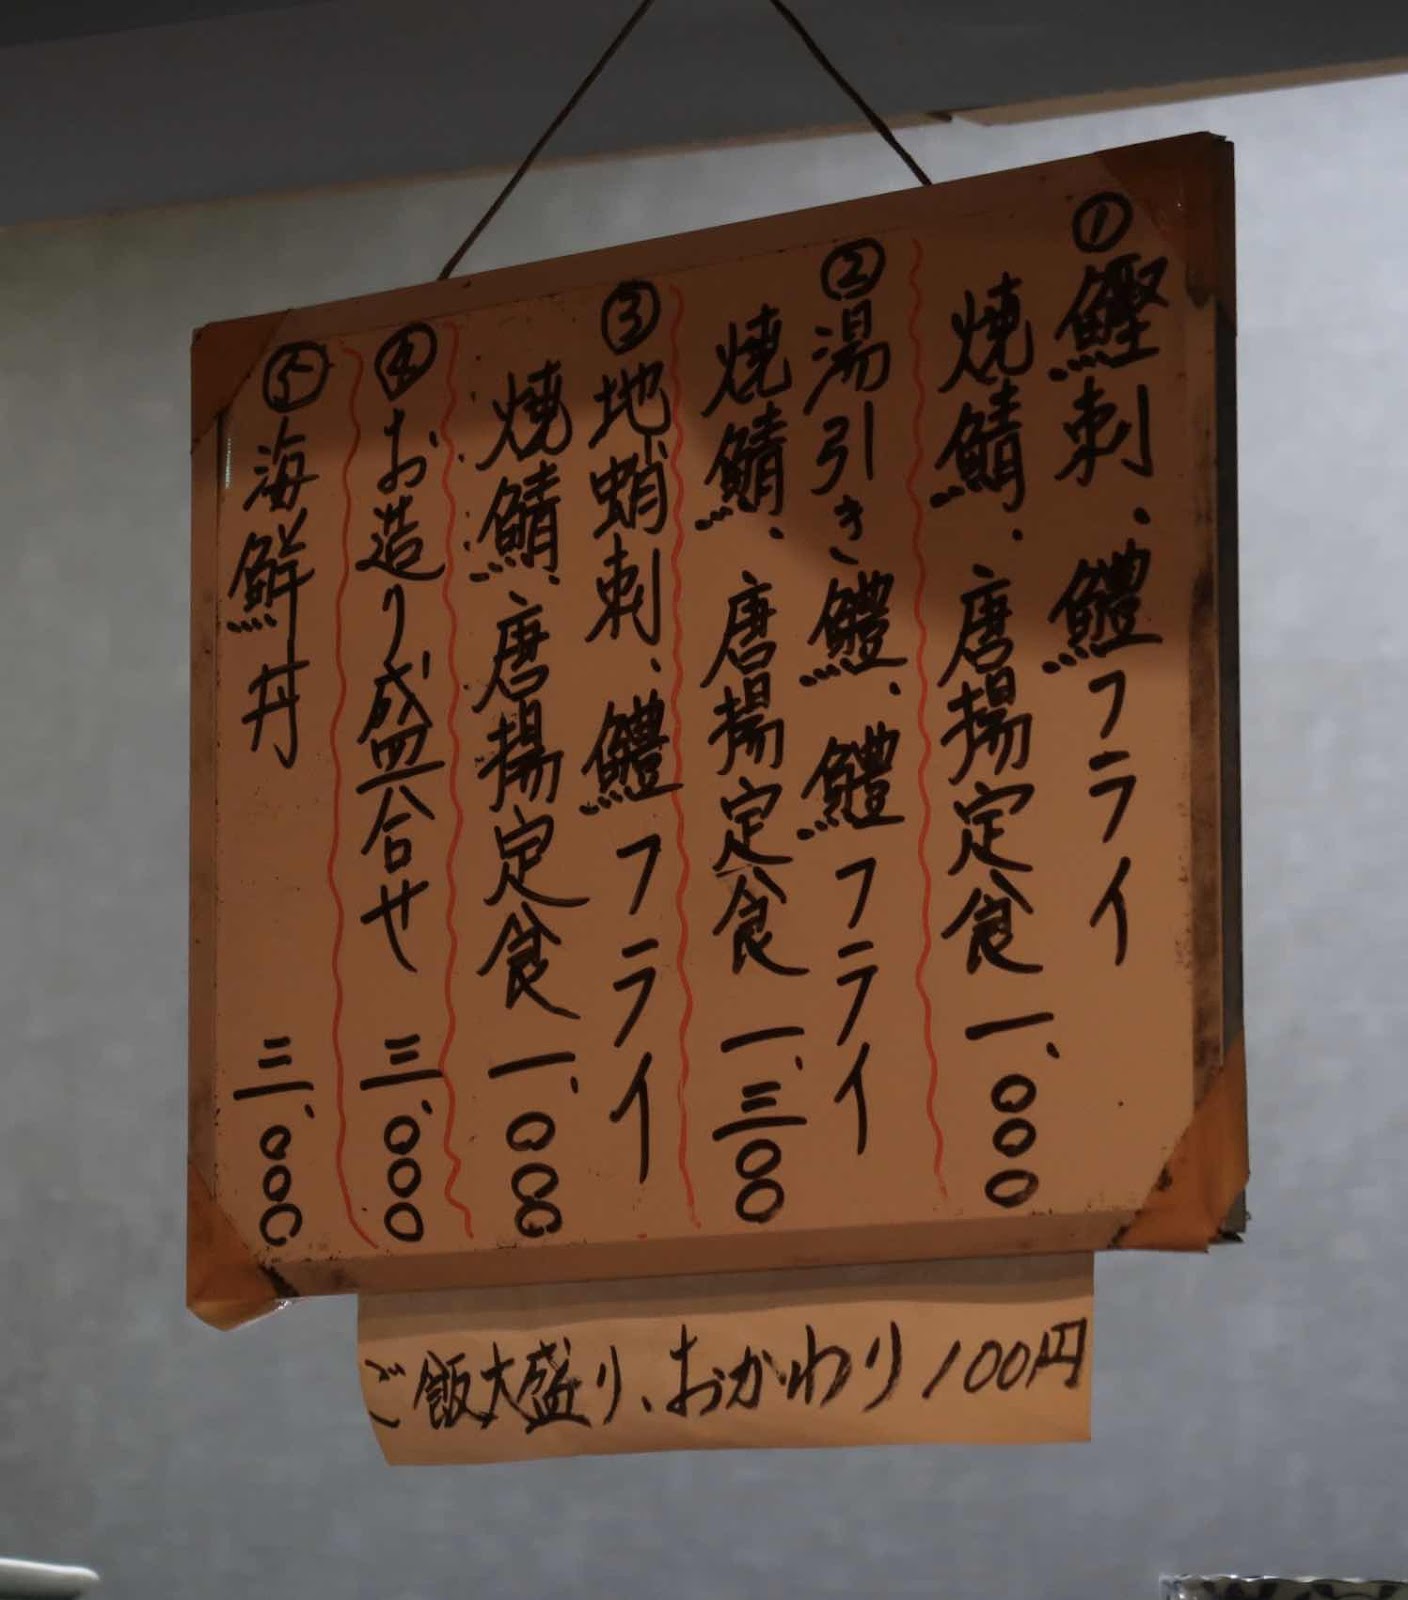 ①鰹刺、鱧フライ
焼鯖、唐揚定食 一、〇〇〇
②湯引き鱧、鱧フライ
焼鯖、唐揚定食 一、三〇〇
③地蛸刺、鱧フライ
焼鯖、唐揚定食 一、〇〇〇
④お造り盛合せ 三、〇〇〇
⑤海鮮丼 三、〇〇〇
ご飯大盛り、おかわり100円